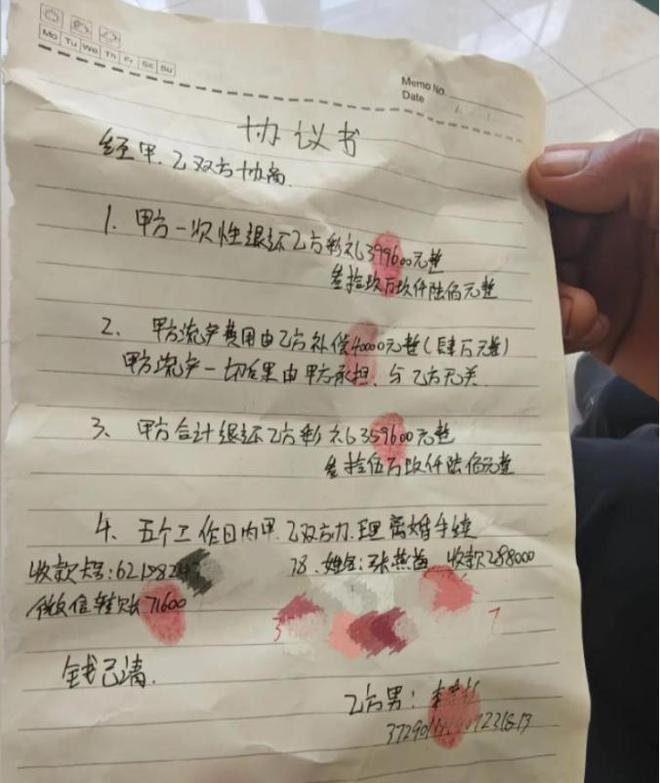 Mo Tu We Th Fr Sa Su
Memo No.
Date
协议书
经甲.乙双方协商.
1. 甲方一次性退还乙方彩礼399600元整
叁拾玖万玖仟陆佰元整
2. 甲方流产费用由乙方补偿40000元整(肆万元整)
甲方流产一切后果由甲方承担.与乙方无关.
3. 甲方合计退还乙方彩礼359600元整
叁拾伍万玖仟陆佰元整
4. 五个工作日内甲.乙双方办理离婚手续
收款卡号:621982 78.姓名:张燕 收款288000
微信转账71600
3 7
钱已清.
乙方男:李